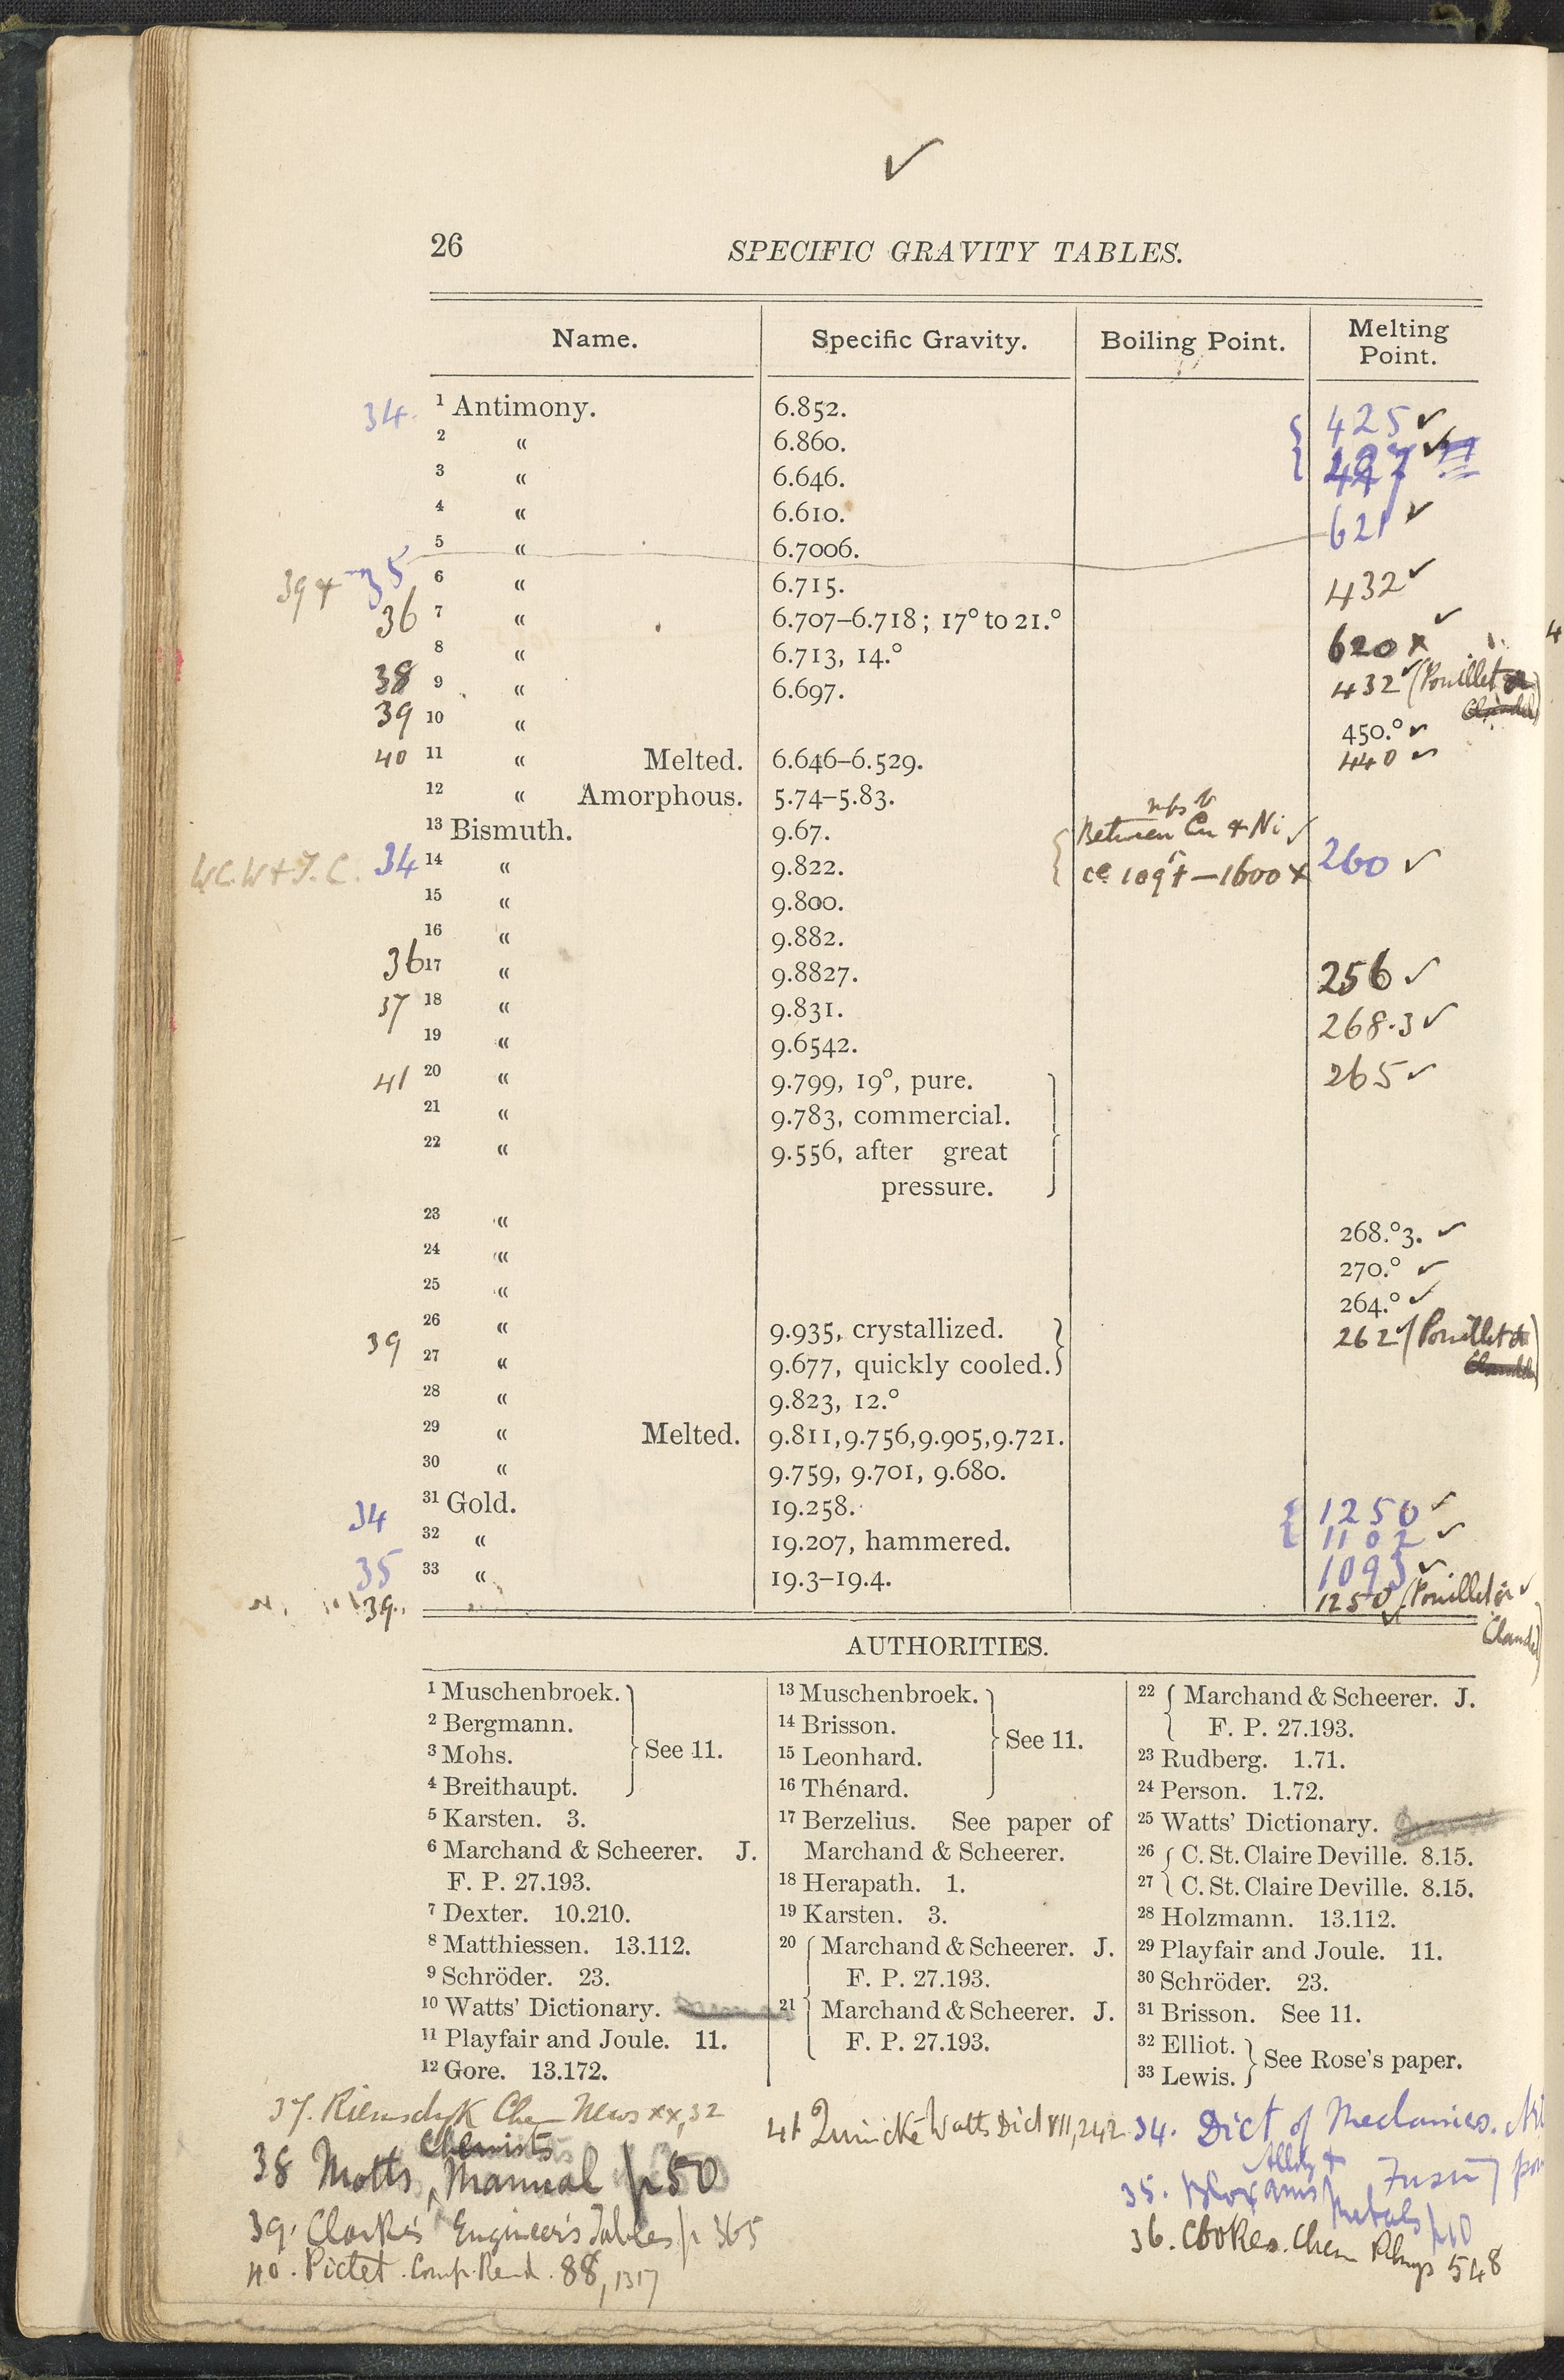 ✓
26 SPECIFIC GRAVITY TABLES.
Name. Specific Gravity. Boiling Point. Melting Point.
34. 1 Antimony. 6.852. 425 ✓
2 “ 6.860.
3 “ 6.646.
4 “ 6.610. 621 ✓
5 “ 6.7006.
39 + 35 6 “ 6.715. 432 ✓
36 7 “ 6.707–6.718; 17° to 21.° 620 x ✓
8 “ 6.713, 14.°
38 9 “ 6.697. 432 ✓ (Pouillet
39 10 “ 450.° ✓
40 11 “ Melted. 6.646–6.529. 440 ✓
12 “ Amorphous. 5.74–5.83.
13 Bismuth. 9.67. Between mps of Cu & Ni ✓
W.C.W & J.C. 34 14 “ 9.822. 109+ – 1600 x 260 ✓
15 “ 9.800.
16 “ 9.882.
36 17 “ 9.8827. 256 ✓
37 18 “ 9.831. 268.3 ✓
19 “ 9.6542.
41 20 “ 9.799, 19°, pure. 265 ✓
21 “ 9.783, commercial.
22 “ 9.556, after great
pressure.
23 “ 268.°3. ✓
24 “ 270.° ✓
25 “ 264.° ✓
26 “ 9.935, crystallized. 262 ✓ (Pouillet
39 27 “ 9.677, quickly cooled.
28 “ 9.823, 12.°
29 “ Melted. 9.811, 9.756, 9.905, 9.721.
30 “ 9.759, 9.701, 9.680.
34 31 Gold. 19.258. 1250 ✓
32 “ 19.207, hammered. 1102 ✓
35 33 “ 19.3–19.4. 1093 ✓
39. 1250 ✓ (Pouillet in ✓
AUTHORITIES.
1 Muschenbroek.
2 Bergmann.
3 Mohs. See 11.
4 Breithaupt.
5 Karsten. 3.
6 Marchand & Scheerer. J.
F. P. 27.193.
7 Dexter. 10.210.
8 Matthiessen. 13.112.
9 Schröder. 23.
10 Watts’ Dictionary.
11 Playfair and Joule. 11.
12 Gore. 13.172.
13 Muschenbroek.
14 Brisson. See 11.
15 Leonhard.
16 Thénard.
17 Berzelius. See paper of
Marchand & Scheerer.
18 Herapath. 1.
19 Karsten. 3.
20 Marchand & Scheerer. J.
F. P. 27.193.
21 Marchand & Scheerer. J.
F. P. 27.193.
22 Marchand & Scheerer. J.
F. P. 27.193.
23 Rudberg. 1.71.
24 Person. 1.72.
25 Watts’ Dictionary.
26 C. St. Claire Deville. 8.15.
27 C. St. Claire Deville. 8.15.
28 Holzmann. 13.112.
29 Playfair and Joule. 11.
30 Schröder. 23.
31 Brisson. See 11.
32 Elliot.
33 Lewis. See Rose’s paper.
37. Riemsdyk Chem News xx, 32
38 Motts Chemists Manual p 50
39. Clarke's Engineer's Tables p 365
40. Pictet. Comp. Rend. 88, 1317
41 Quincke Watts Dict VIII, 242
34. Dict of Mechanics. Art
Alloy & Fusing poi
35. Bloxams Metals p 10
36. Cookes. Chem Phys 548